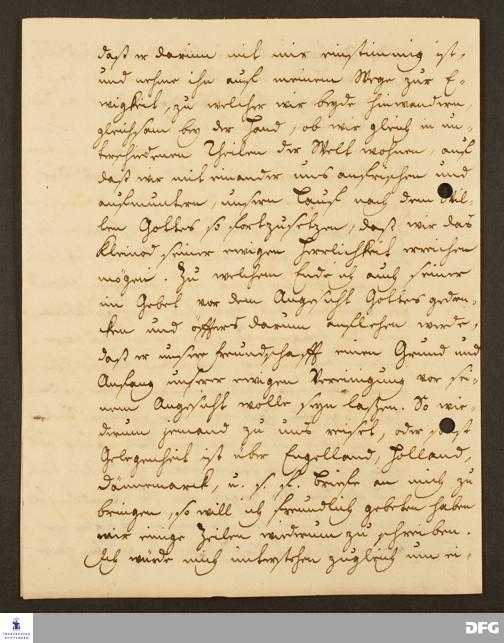 daß er darinn mit mir einstimmig ist,
und nehme ihn auf meinem Wege zur E-
wigkeit, zu welcher wir beyde hinwandern,
gleichsam bey der Hand, ob wir gleich in un-
terschiedenen Theilen der Welt wohnen, auf
daß wir mit einander uns anfrischen und
aufmuntern, unsern Lauf nach dem Wil-
len Gottes so fortzusetzen, daß wir das
Kleinod seiner ewigen Herrlichkeit erreichen
mögen. Zu welchem Ende ich auch seiner
im Gebet vor dem Angesicht Gottes geden-
cken und öffters darum anflehen werde,
daß er unsere Freundschafft einen Grund und
Anfang unserer ewigen Vereinigung vor sei-
nem Angesicht wolle seyn laßen. So wie-
derum jemand zu uns reiset, oder sonst
Gelegenheit ist über Engelland, Holland,
Dännemarck, u. s. f. Briefe an mich zu
bringen, so will ich freundlich gebeten haben
mir einige Zeilen wiedrum zu schreiben.
Ich würde mich unterstehen zugleich um ei-
FRANCKESCHE
STIFTUNGEN
DFG